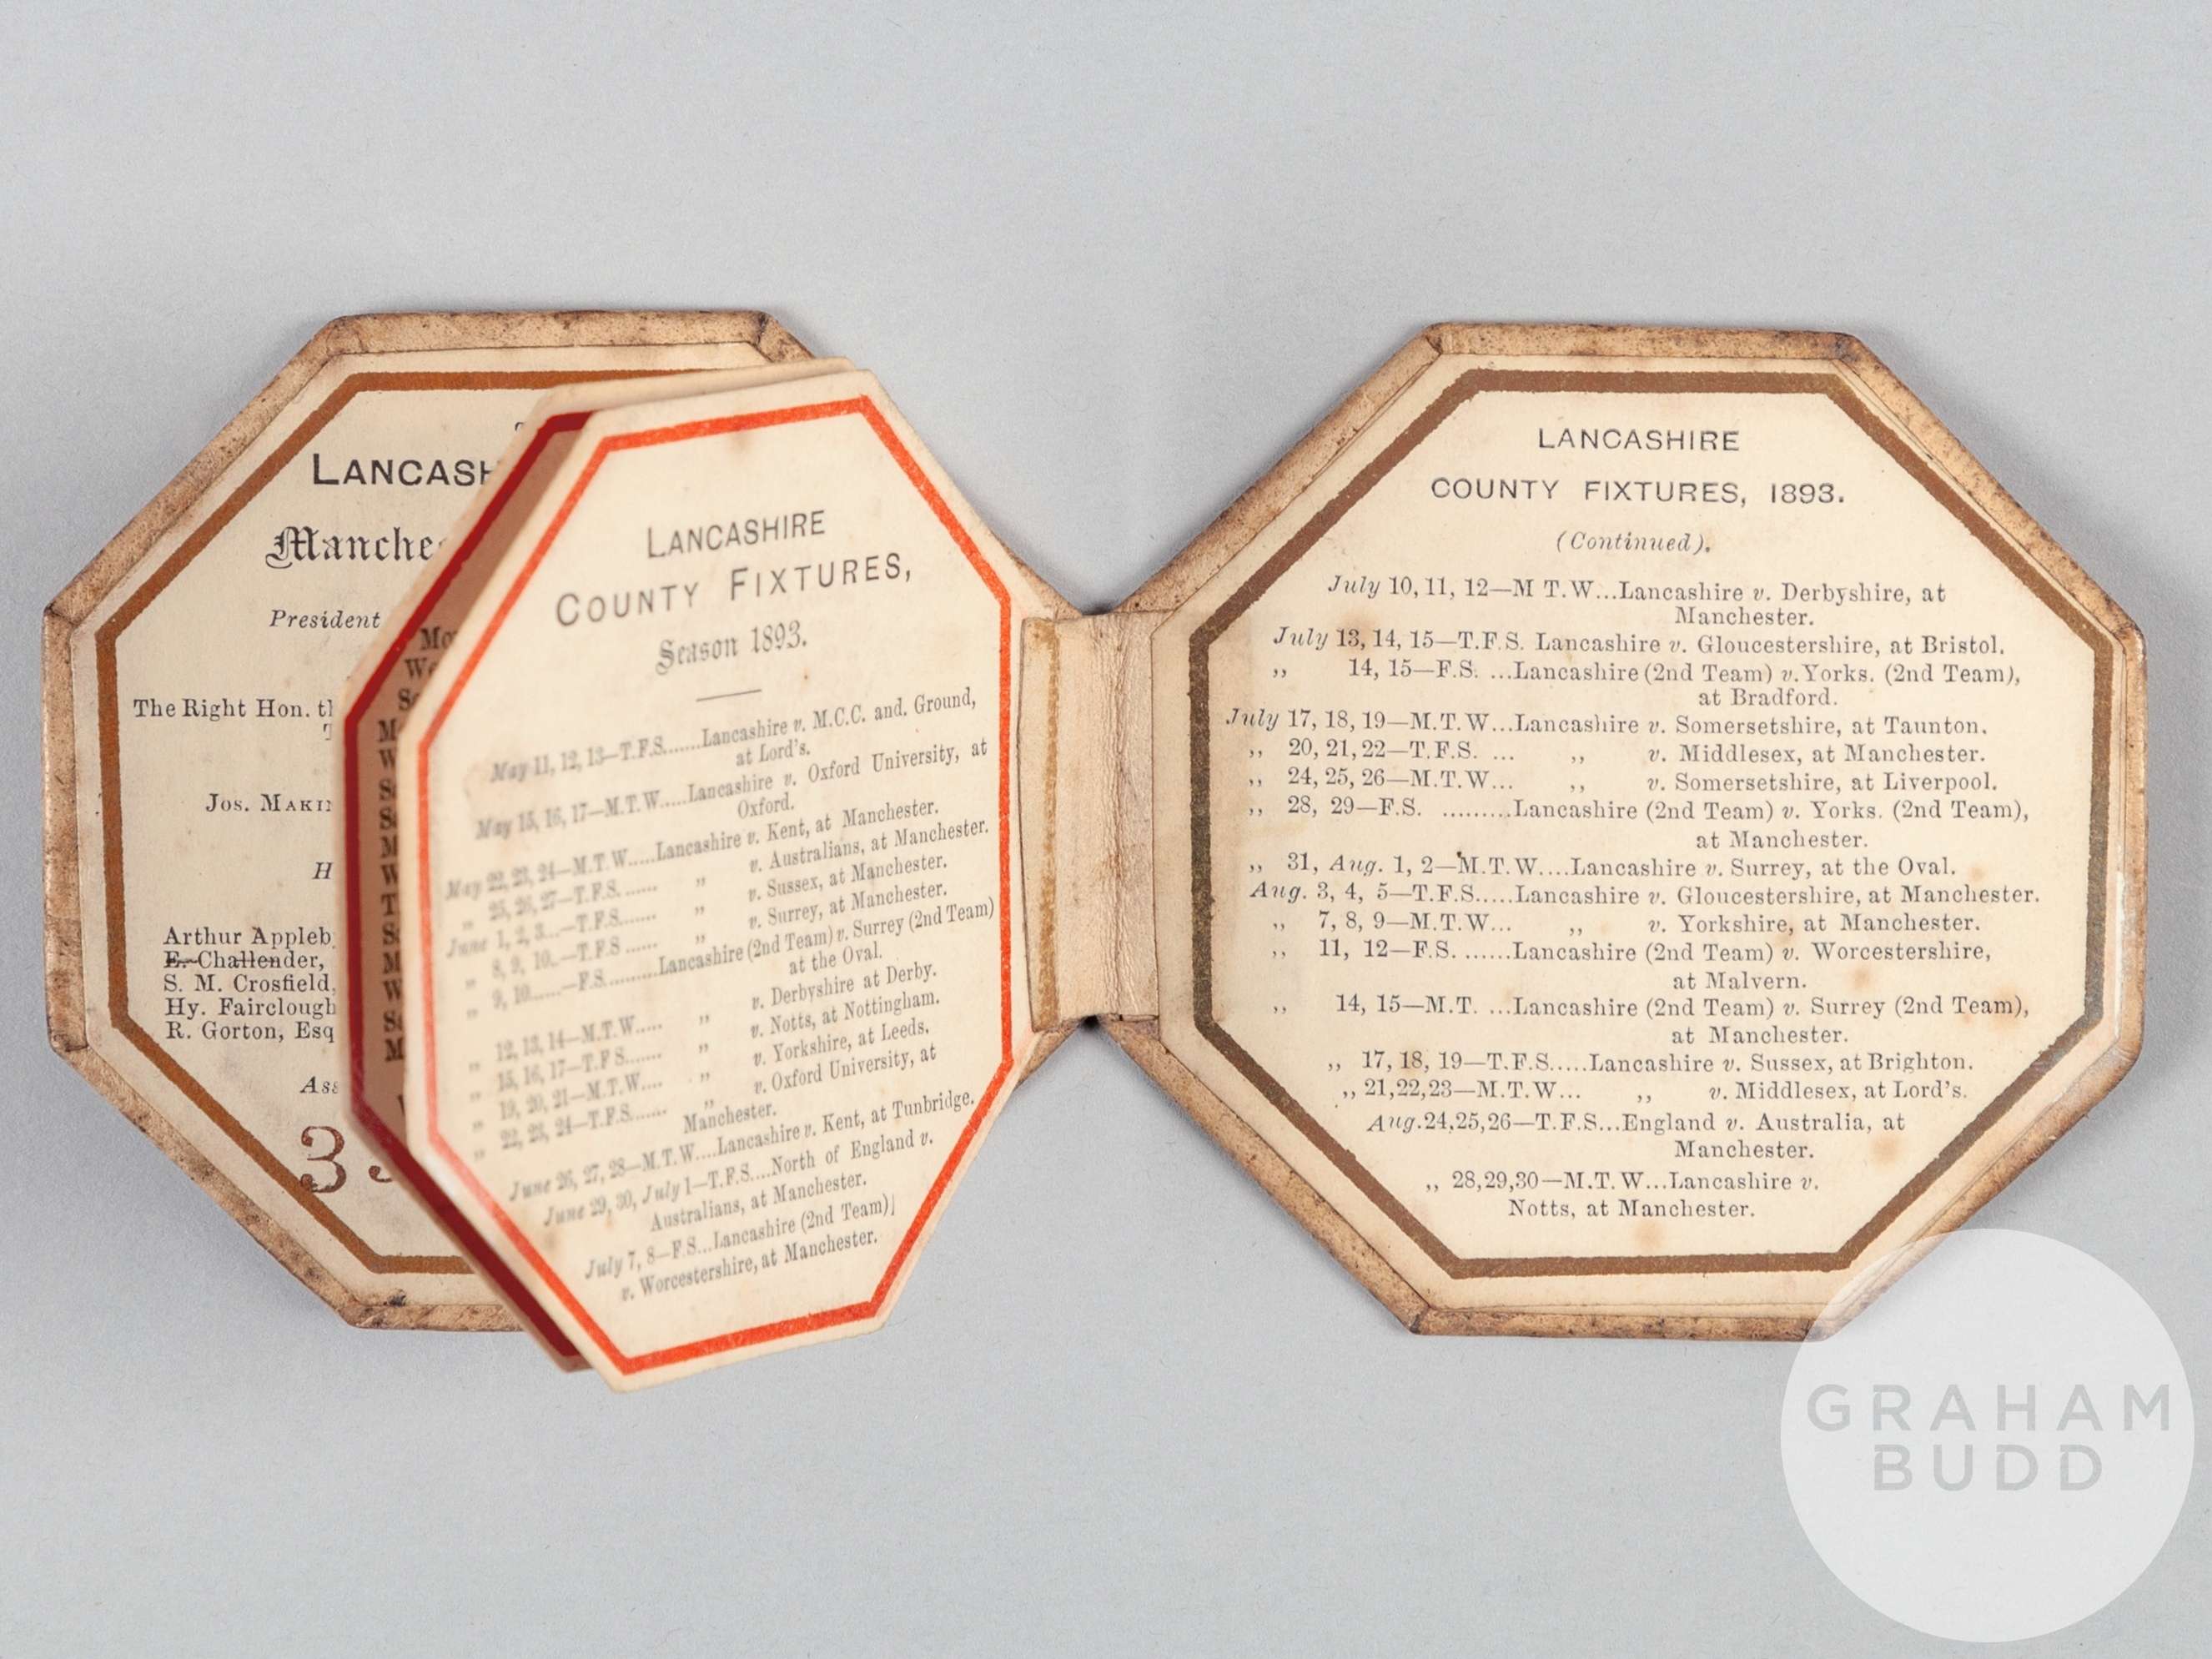 LANCASH
Manche
President
The Right Hon. th
Jos. MAKI
H
Arthur Appleb
E. Challender,
S. M. Crosfield,
Hy. Fairclough
R. Gorton, Esq
Ass
LANCASHIRE
COUNTY FIXTURES,
Season 1893.
May 11, 12, 13—T.F.S.......Lancashire v. M.C.C. and. Ground,
at Lord's.
May 15, 16, 17—M.T.W.....Lancashire v. Oxford University, at
Oxford.
May 22, 23, 24—M.T.W.....Lancashire v. Kent, at Manchester.
„ 25, 26, 27—T.F.S. ...... „ v. Australians, at Manchester.
June 1, 2, 3...—T.F.S....... „ v. Sussex, at Manchester.
„ 8, 9, 10.—T.F.S ...... „ v. Surrey, at Manchester.
„ 9, 10......—F.S..........Lancashire (2nd Team) v. Surrey (2nd Team)
at the Oval.
„ 12, 13, 14—M.T.W..... „ v. Derbyshire at Derby.
„ 15, 16, 17—T.F S....... „ v. Notts, at Nottingham.
„ 19, 20, 21—M.T.W.... „ v. Yorkshire, at Leeds.
„ 22, 23, 24—T.F.S....... „ v. Oxford University, at
Manchester.
June 26, 27, 28—M.T.W....Lancashire v. Kent, at Tunbridge.
June 29, 30, July 1—T.F.S....North of England v.
Australians, at Manchester.
July 7, 8—F.S...Lancashire (2nd Team)
v. Worcestershire, at Manchester.
LANCASHIRE
COUNTY FIXTURES, 1893.
(Continued).
July 10, 11, 12—M T.W...Lancashire v. Derbyshire, at
Manchester.
July 13, 14, 15—T.F.S. Lancashire v. Gloucestershire, at Bristol.
„ 14, 15—F.S. ...Lancashire (2nd Team) v. Yorks. (2nd Team),
at Bradford.
July 17, 18, 19—M.T.W...Lancashire v. Somersetshire, at Taunton.
„ 20, 21, 22—T.F.S. ... „ v. Middlesex, at Manchester.
„ 24, 25, 26—M.T.W... „ v. Somersetshire, at Liverpool.
„ 28, 29—F.S. .........Lancashire (2nd Team) v. Yorks. (2nd Team),
at Manchester.
„ 31, Aug. 1, 2—M.T.W....Lancashire v. Surrey, at the Oval.
Aug. 3, 4, 5—T.F.S.....Lancashire v. Gloucestershire, at Manchester.
„ 7, 8, 9—M.T.W... „ v. Yorkshire, at Manchester.
„ 11, 12—F.S. ......Lancashire (2nd Team) v. Worcestershire,
at Malvern.
„ 14, 15—M.T. ...Lancashire (2nd Team) v. Surrey (2nd Team),
at Manchester.
„ 17, 18, 19—T.F.S.....Lancashire v. Sussex, at Brighton.
„ 21,22,23—M.T.W... „ v. Middlesex, at Lord's.
Aug.24,25,26—T.F.S...England v. Australia, at
Manchester.
„ 28,29,30—M.T.W...Lancashire v.
Notts, at Manchester.
GRAHAM
BUDD